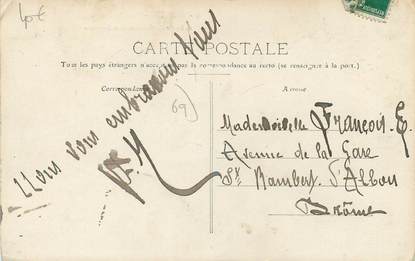 40€
CARTE POSTALE
Tous les pays étrangers n'acceptent pas la correspondance au recto (se renseigner à la poste).
Correspondance
Adresse
Nous vous embrassons tous
69)
Mademoiselle François. E.
Avenue de la Gare
St Rambert. d'Albon
Drôme